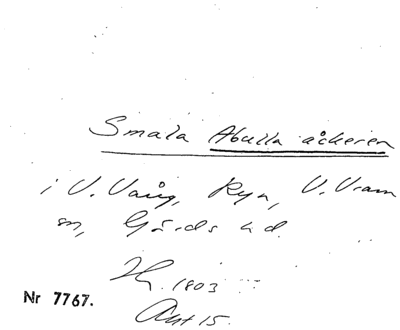 Smala Abulla åckeren
i V. Vång, Ryn, V. Vram
sn, Gärds hd.
1803
Akt 15.
Nr 7767.